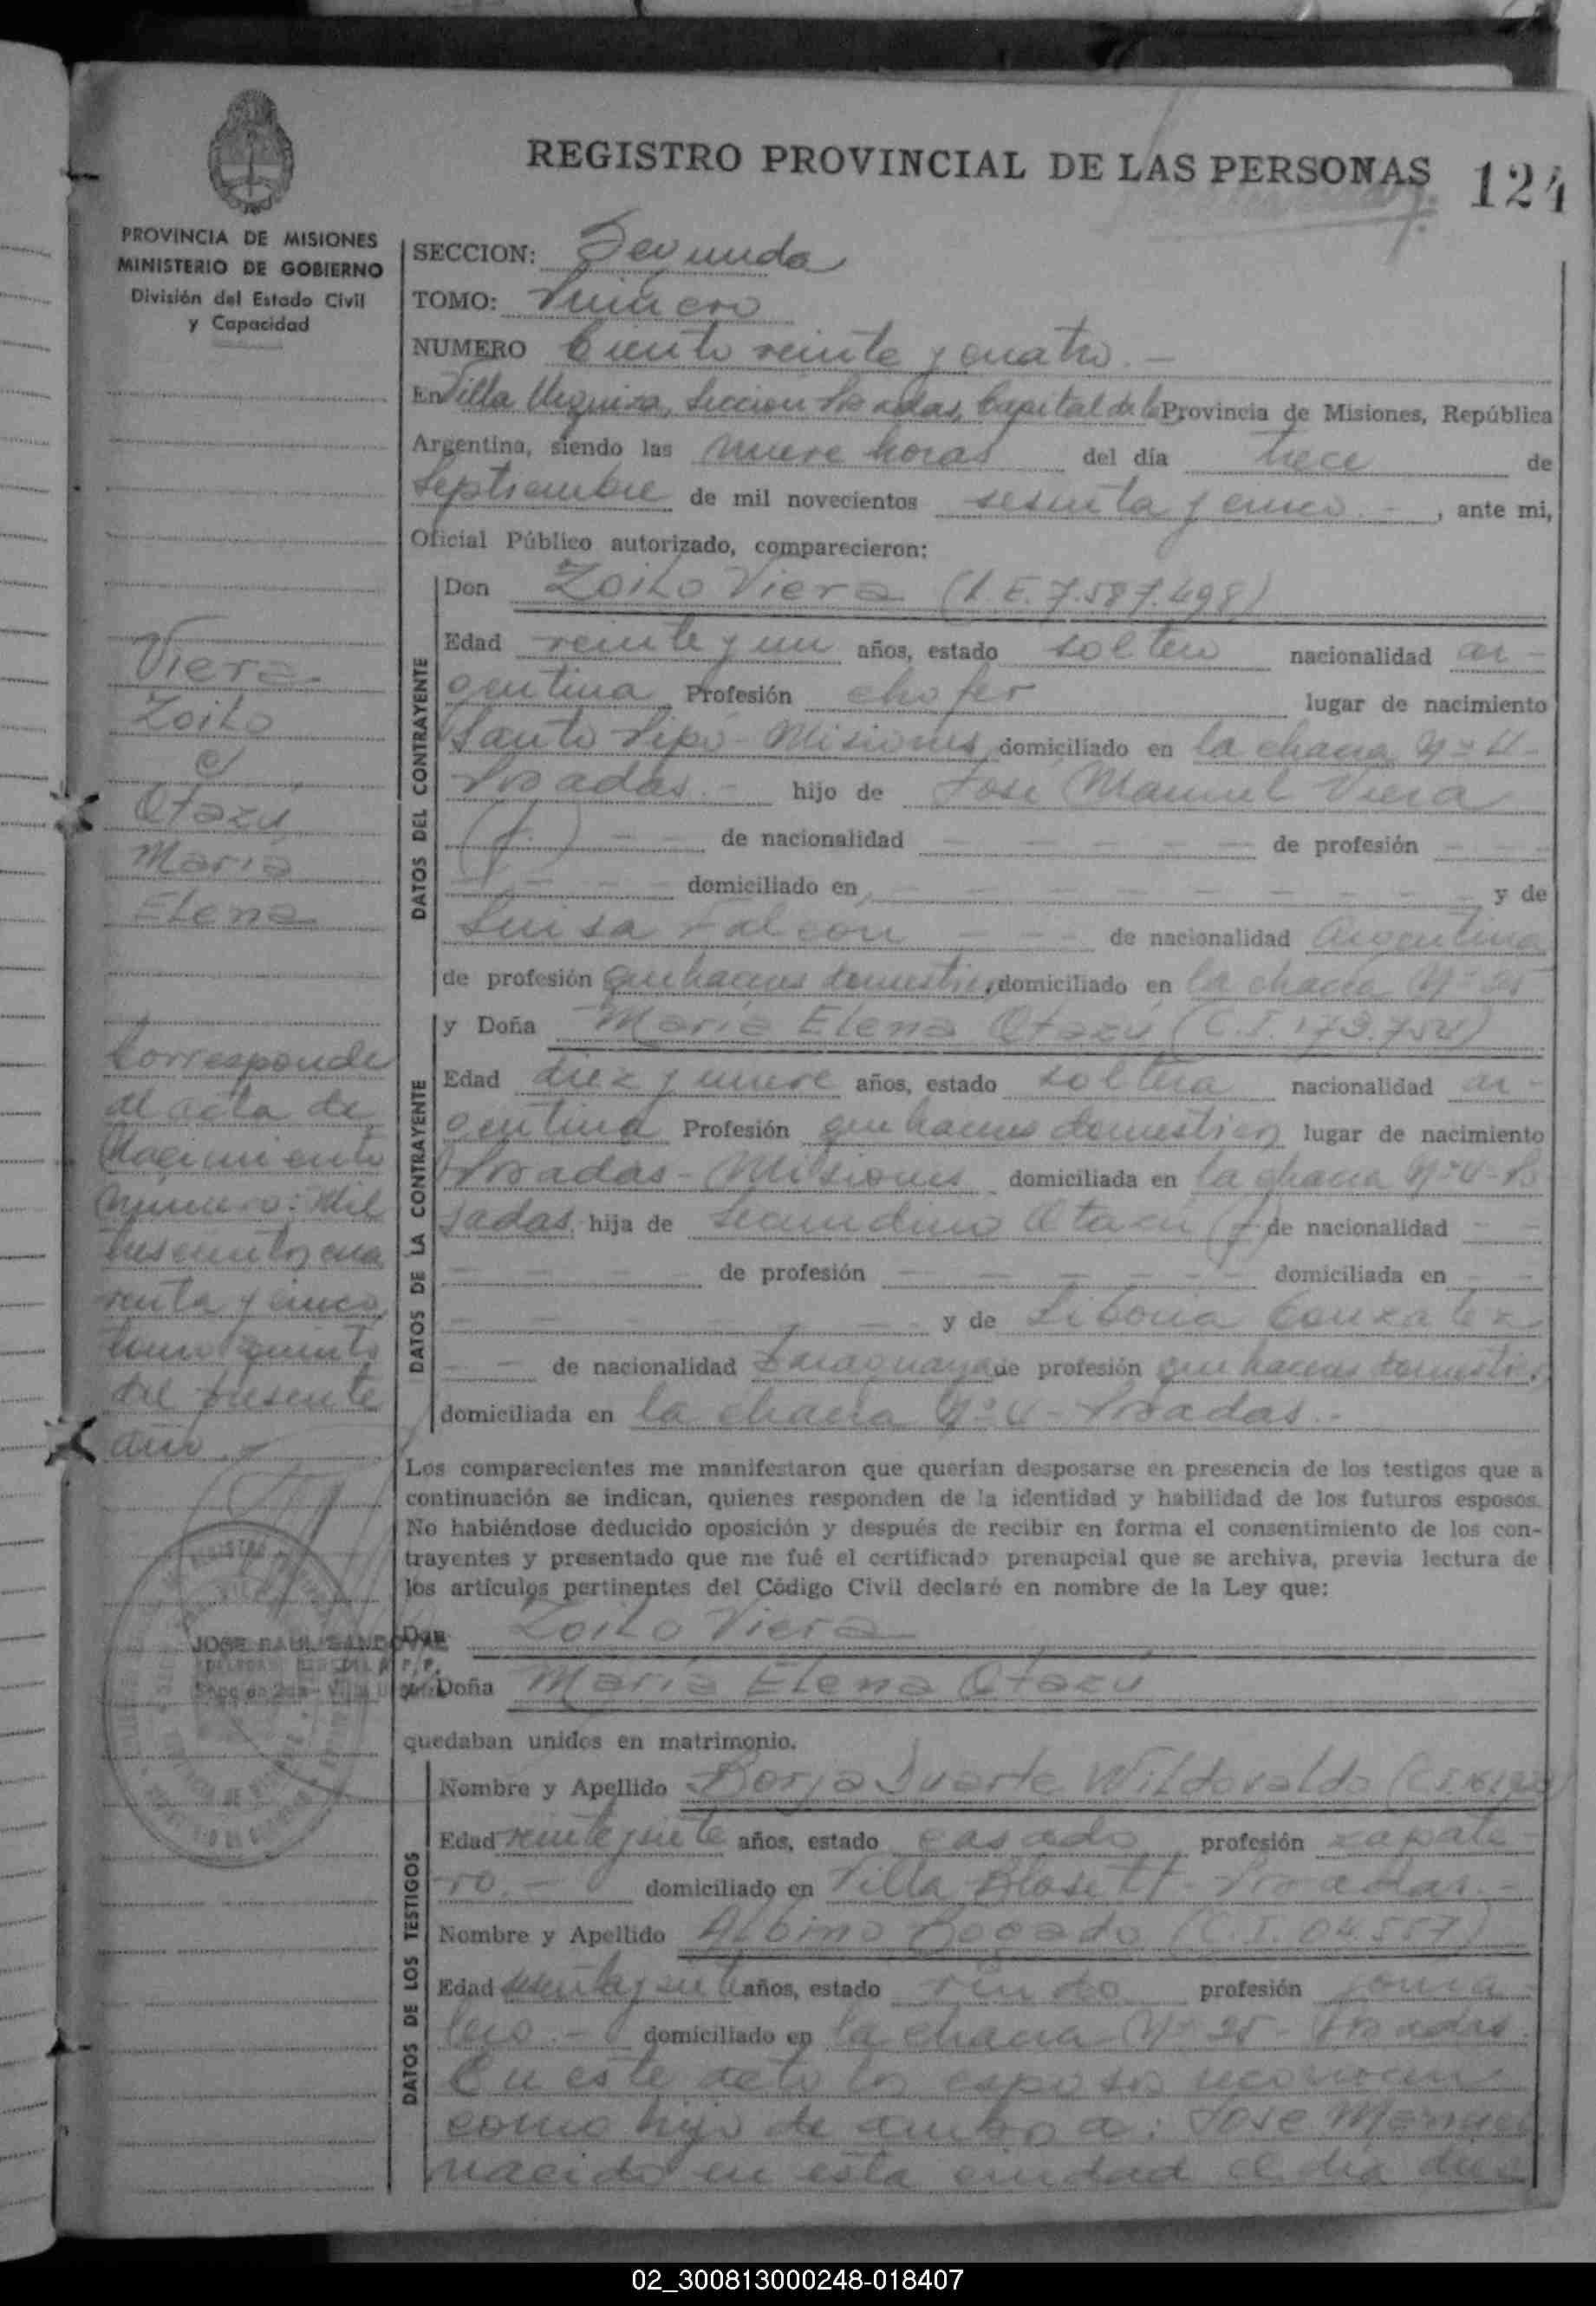 REGISTRO PROVINCIAL DE LAS PERSONAS 124
PROVINCIA DE MISIONES
MINISTERIO DE GOBIERNO
División del Estado Civil
y Capacidad
SECCION: Segunda
TOMO: Primero
NUMERO Ciento veinte y cuatro.-
En Villa Urquiza, Sección Posadas, Capital de la Provincia de Misiones, República
Argentina, siendo las nueve horas del día trece de
Septiembre de mil novecientos sesenta y cinco.-, ante mi,
Oficial Público autorizado, comparecieron:
DATOS DEL CONTRAYENTE
Don Zoilo Viera (L.E. 7.587.498)
Edad veinte y un años, estado soltero nacionalidad ar-
gentina Profesión chofer lugar de nacimiento
Santo Pipó - Misiones domiciliado en la chacra Nº 4-
Posadas.- hijo de José Manuel Viera
(f.) - - de nacionalidad - - - - - de profesión - - -
- - - - domiciliado en - - - - - - - - y de
Luisa Falcón - - - de nacionalidad Argentina
de profesión quehaceres domésticos, domiciliado en la chacra Nº 25
DATOS DE LA CONTRAYENTE
y Doña María Elena Otazú (C.I. 173.754)
Edad diez y nueve años, estado soltera nacionalidad ar-
gentina Profesión quehaceres domésticos lugar de nacimiento
Posadas - Misiones domiciliada en la chacra Nº 4 - Po
sadas, hija de Secundino Otazú (f) de nacionalidad - -
- - - - de profesión - - - - - domiciliada en - -
- - - - - y de Liboria González
- - de nacionalidad Paraguaya de profesión quehaceres domésticos,
domiciliada en la chacra Nº 4 - Posadas.-
Los comparecientes me manifestaron que querían desposarse en presencia de los testigos que a
continuación se indican, quienes responden de la identidad y habilidad de los futuros esposos.
No habiéndose deducido oposición y después de recibir en forma el consentimiento de los con-
trayentes y presentado que me fué el certificado prenupcial que se archiva, previa lectura de
los artículos pertinentes del Código Civil declaré en nombre de la Ley que:
Don Zoilo Viera
y Doña María Elena Otazú
quedaban unidos en matrimonio.
DATOS DE LOS TESTIGOS
Nombre y Apellido Borja Duarte Wildovaldo (C.I.
Edad veinte y siete años, estado casado profesión zapate-
ro.- domiciliado en Villa Blosett - Posadas.-
Nombre y Apellido Albino Bogado (C.I. 04.557)
Edad sesenta y siete años, estado viudo profesión jorna-
lero.- domiciliado en la chacra Nº 25 - Posadas.
En este acto los esposos reconocen
como hijo de ambos a: José Manuel
nacido en esta ciudad el día diez
Viera
Zoilo
c/
Otazú
María
Elena
Corresponde
al acta de
Nacimiento
número: Mil
trescientos cua
renta y cinco
tomo quinto
del presente
año.-
JOSE RAUL SANDOVAL
02_300813000248-018407